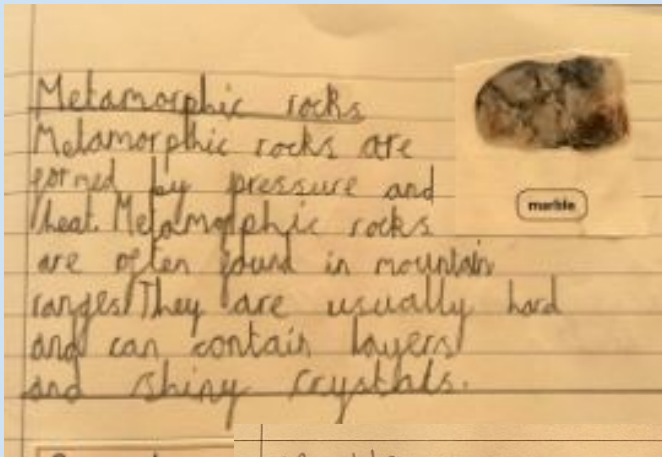 Metamorphic rocks
Metamorphic rocks are
formed by pressure and
heat. Metamorphic rocks
are often found in mountain
ranges. They are usually hard
and can contain layers
and shiny crystals.
marble